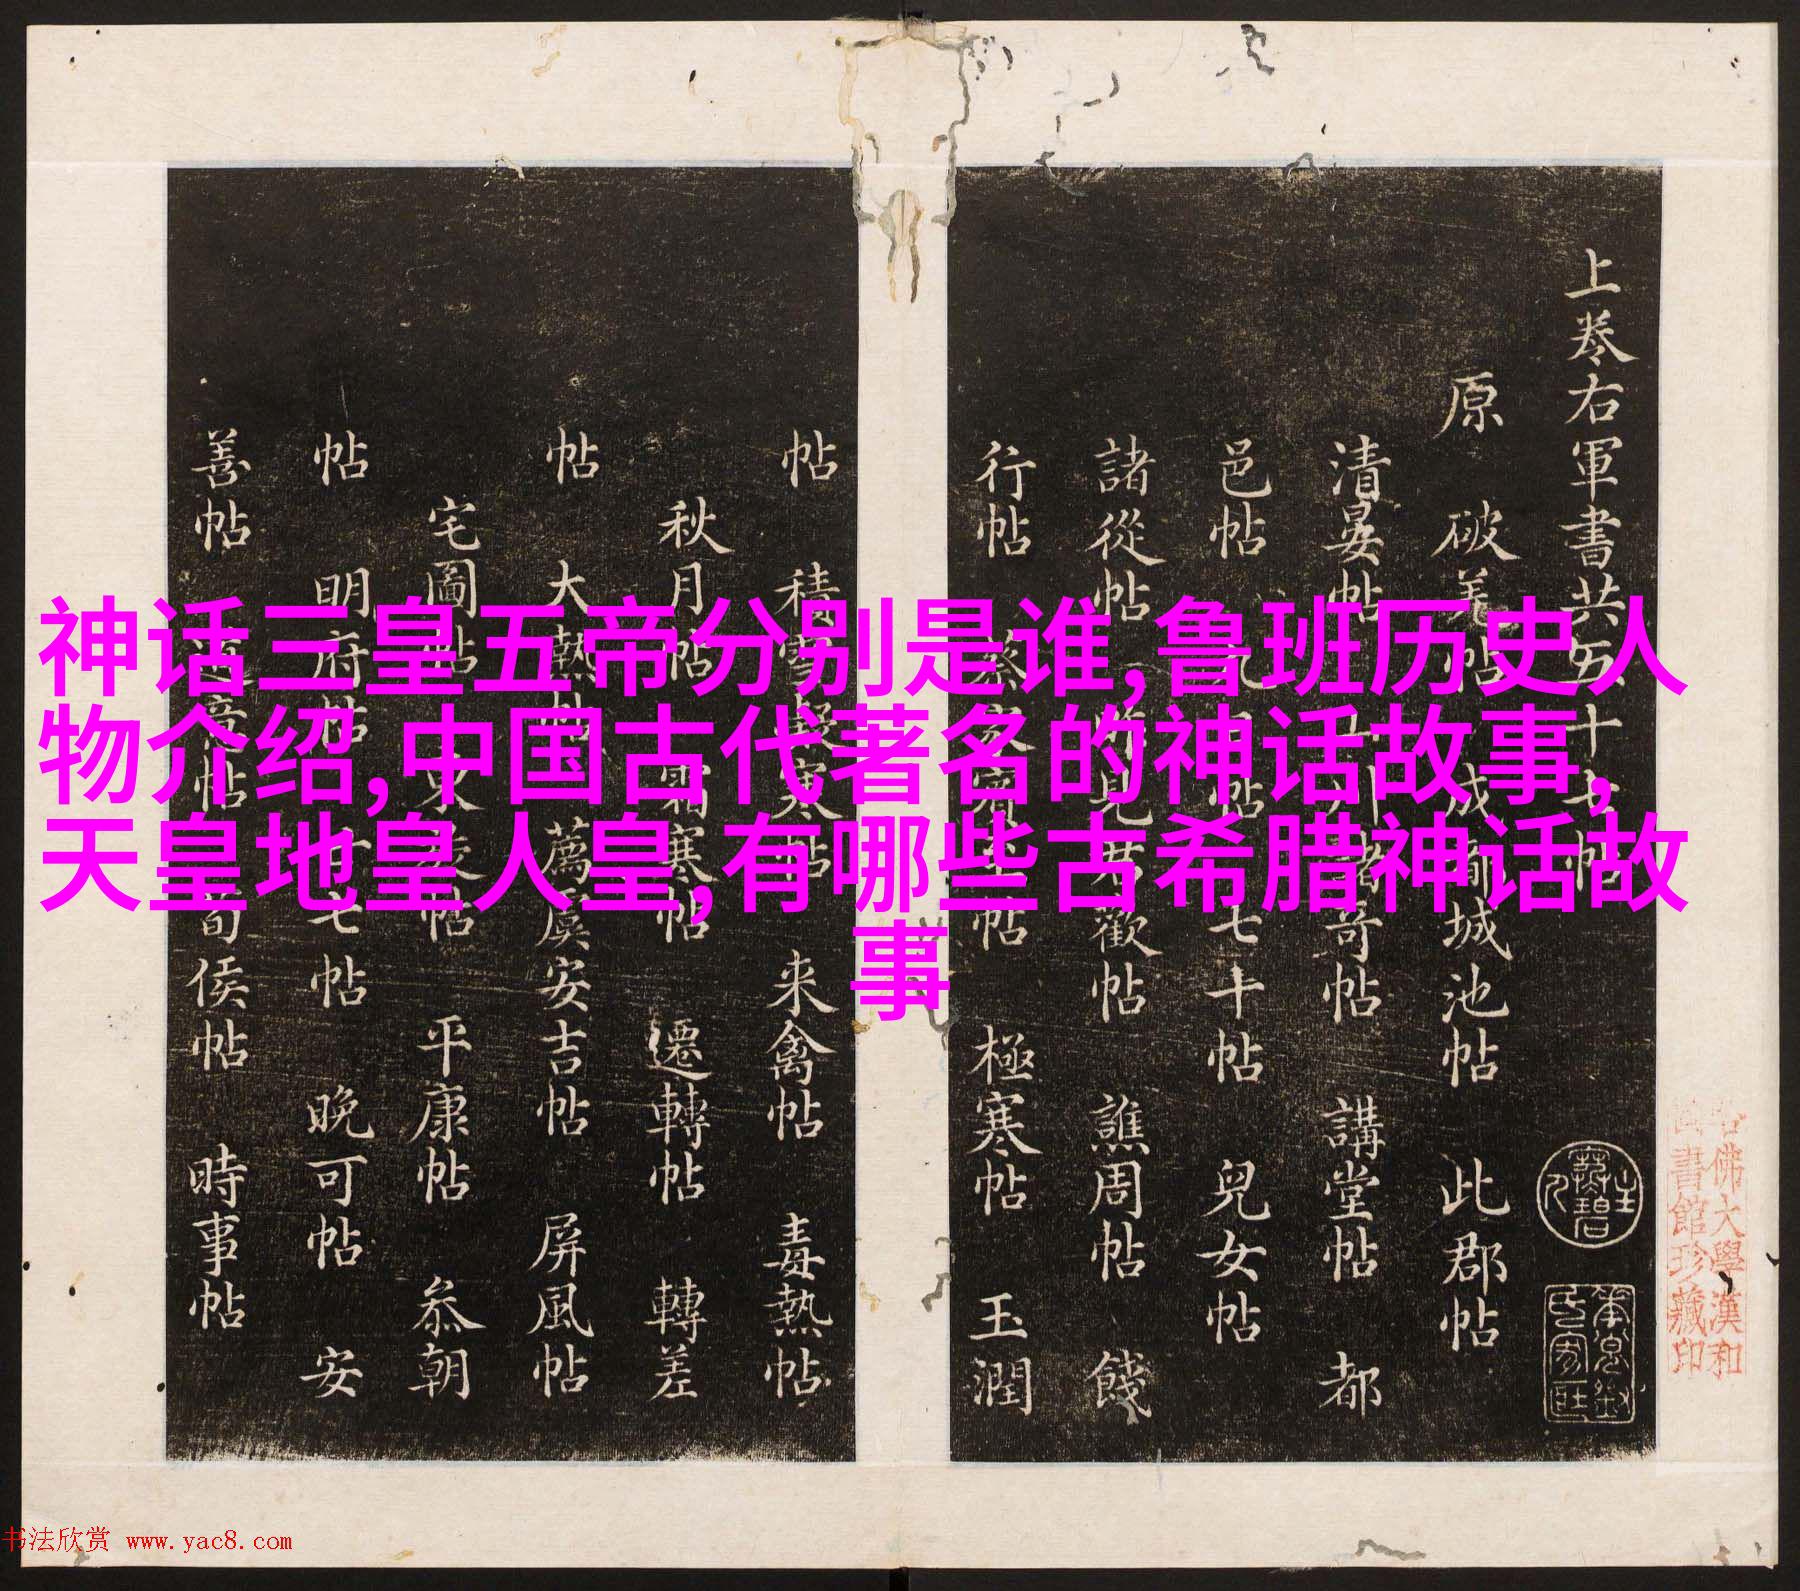 神话三皇五帝分别是谁,鲁班历史人
物介绍,中国古代著名的神话故事,
天皇地皇人皇,有哪些古希腊神话故
事
上卷右軍書共五十七帖
原 破羌帖 成都城池帖 此郡帖
清晏帖 諸奇帖 講堂帖 都
邑帖 七十帖 兒女帖
諸從帖 歡帖 譙周帖 餞
行帖 蔡家賓至帖 極寒帖 玉潤
帖 積雪凝寒帖 来禽帖 毒熱帖
秋月帖 霜寒帖 遷轉帖 轉差
帖 大熱帖 薦虞安吉帖 屏風帖
宅圖帖 帖 平康帖 叅朝
帖 明府帖 十七帖 晚可帖 安
善帖 荀侯帖 時事帖
佛大學漢和
書館珍藏印
书法欣赏 www.yac8.com